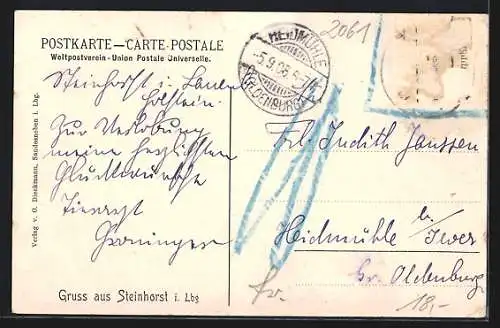 POSTKARTE — CARTE-POSTALE
Weltpostverein - Union Postale Universelle.
2061
HEIDMÜHLE
5.9.06.
OLDENBURG
Steinhorst i. Lauenb
Holstein.
Zur Verlobung
meine herzlichsten
Glückwünsche
Tierarzt
Groningen
Frl. Judith Janssen
Heidmühle b/
Jever
Gr. Oldenburg
fr.
18,-
Gruss aus Steinhorst i. Lbg
Verlag v. O. Dieckmann, Sandesneben i. Lbg.